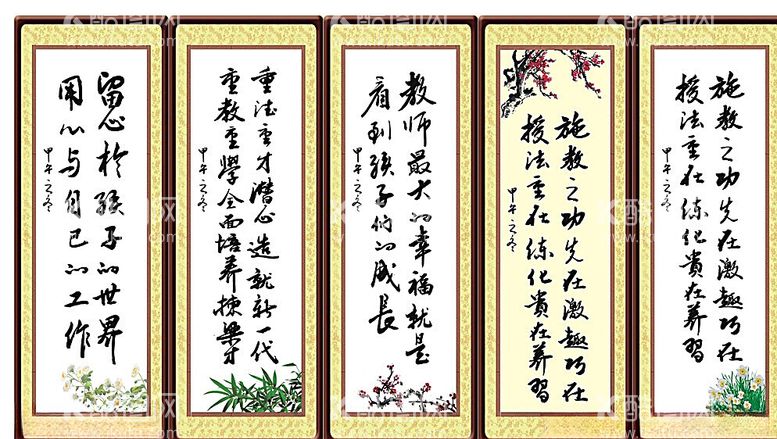 留心於孩子的世界
用心与自己的工作
甲午之冬
重德重才潜心造就新一代
重教重學全面培养棟梁才
甲午之冬
教师最大的幸福就是
看到孩子们的成長
甲午之冬
施教之功先在激趣巧在
授法重在练化貴在养習
甲午之冬
施教之功先在激趣巧在
授法重在练化貴在养習
甲午之冬